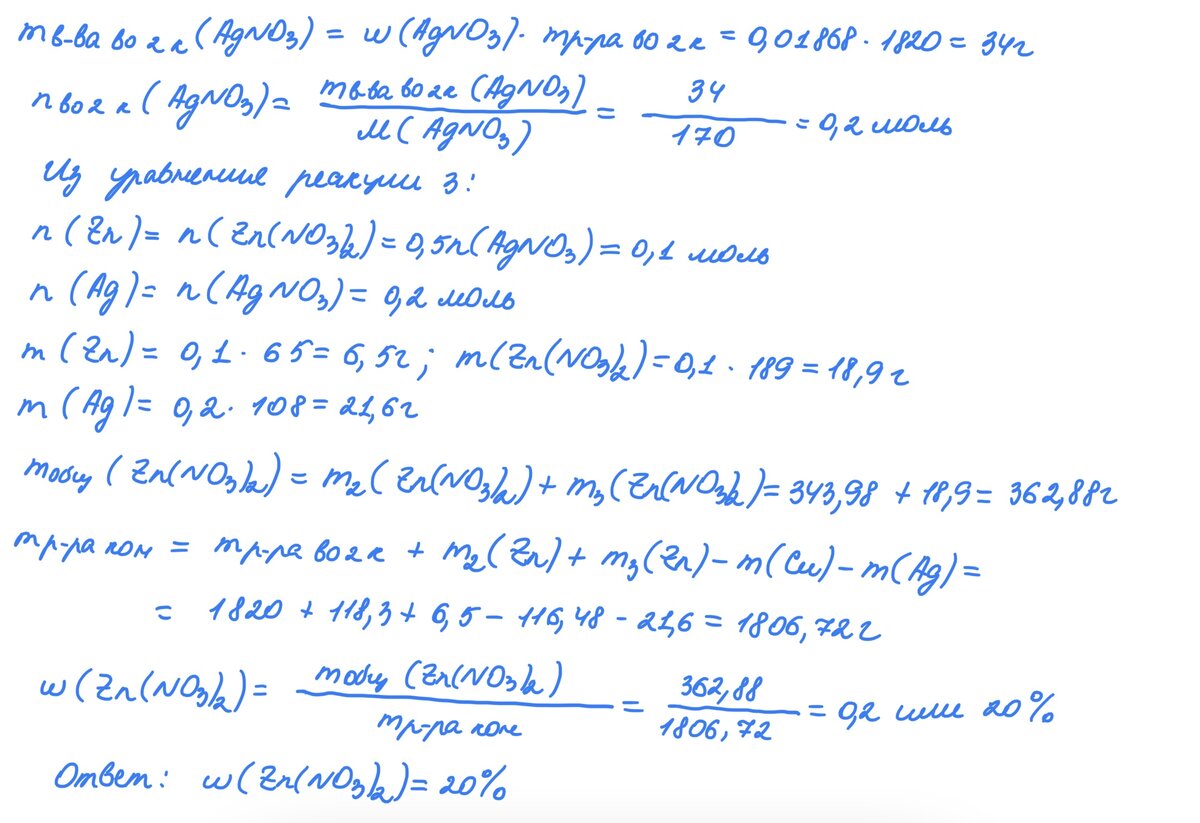 mв-ва во 2 к (AgNO₃) = w(AgNO₃)· mр-ра во 2 к = 0,01868 · 1820 = 34г
nво 2 к (AgNO₃) = mв-ва во 2к (AgNO₃) / M(AgNO₃) = 34 / 170 = 0,2 моль
Из уравнения реакции 3:
n(Zn) = n(Zn(NO₃)₂) = 0,5n(AgNO₃) = 0,1 моль
n(Ag) = n(AgNO₃) = 0,2 моль
m(Zn) = 0,1 · 65 = 6,5г ; m(Zn(NO₃)₂) = 0,1 · 189 = 18,9 г
m(Ag) = 0,2 · 108 = 21,6г
mобщ (Zn(NO₃)₂) = m₂(Zn(NO₃)₂) + m₃(Zn(NO₃)₂) = 343,98 + 18,9 = 362,88г
mр-ра кон = mр-ра во 2 к + m₂(Zn) + m₃(Zn) – m(Cu) – m(Ag) =
= 1820 + 118,3 + 6,5 – 116,48 - 21,6 = 1806,72 г
w(Zn(NO₃)₂) = mобщ (Zn(NO₃)₂) / mр-ра кон = 362,88 / 1806,72 = 0,2 или 20%
Ответ: w(Zn(NO₃)₂) = 20%